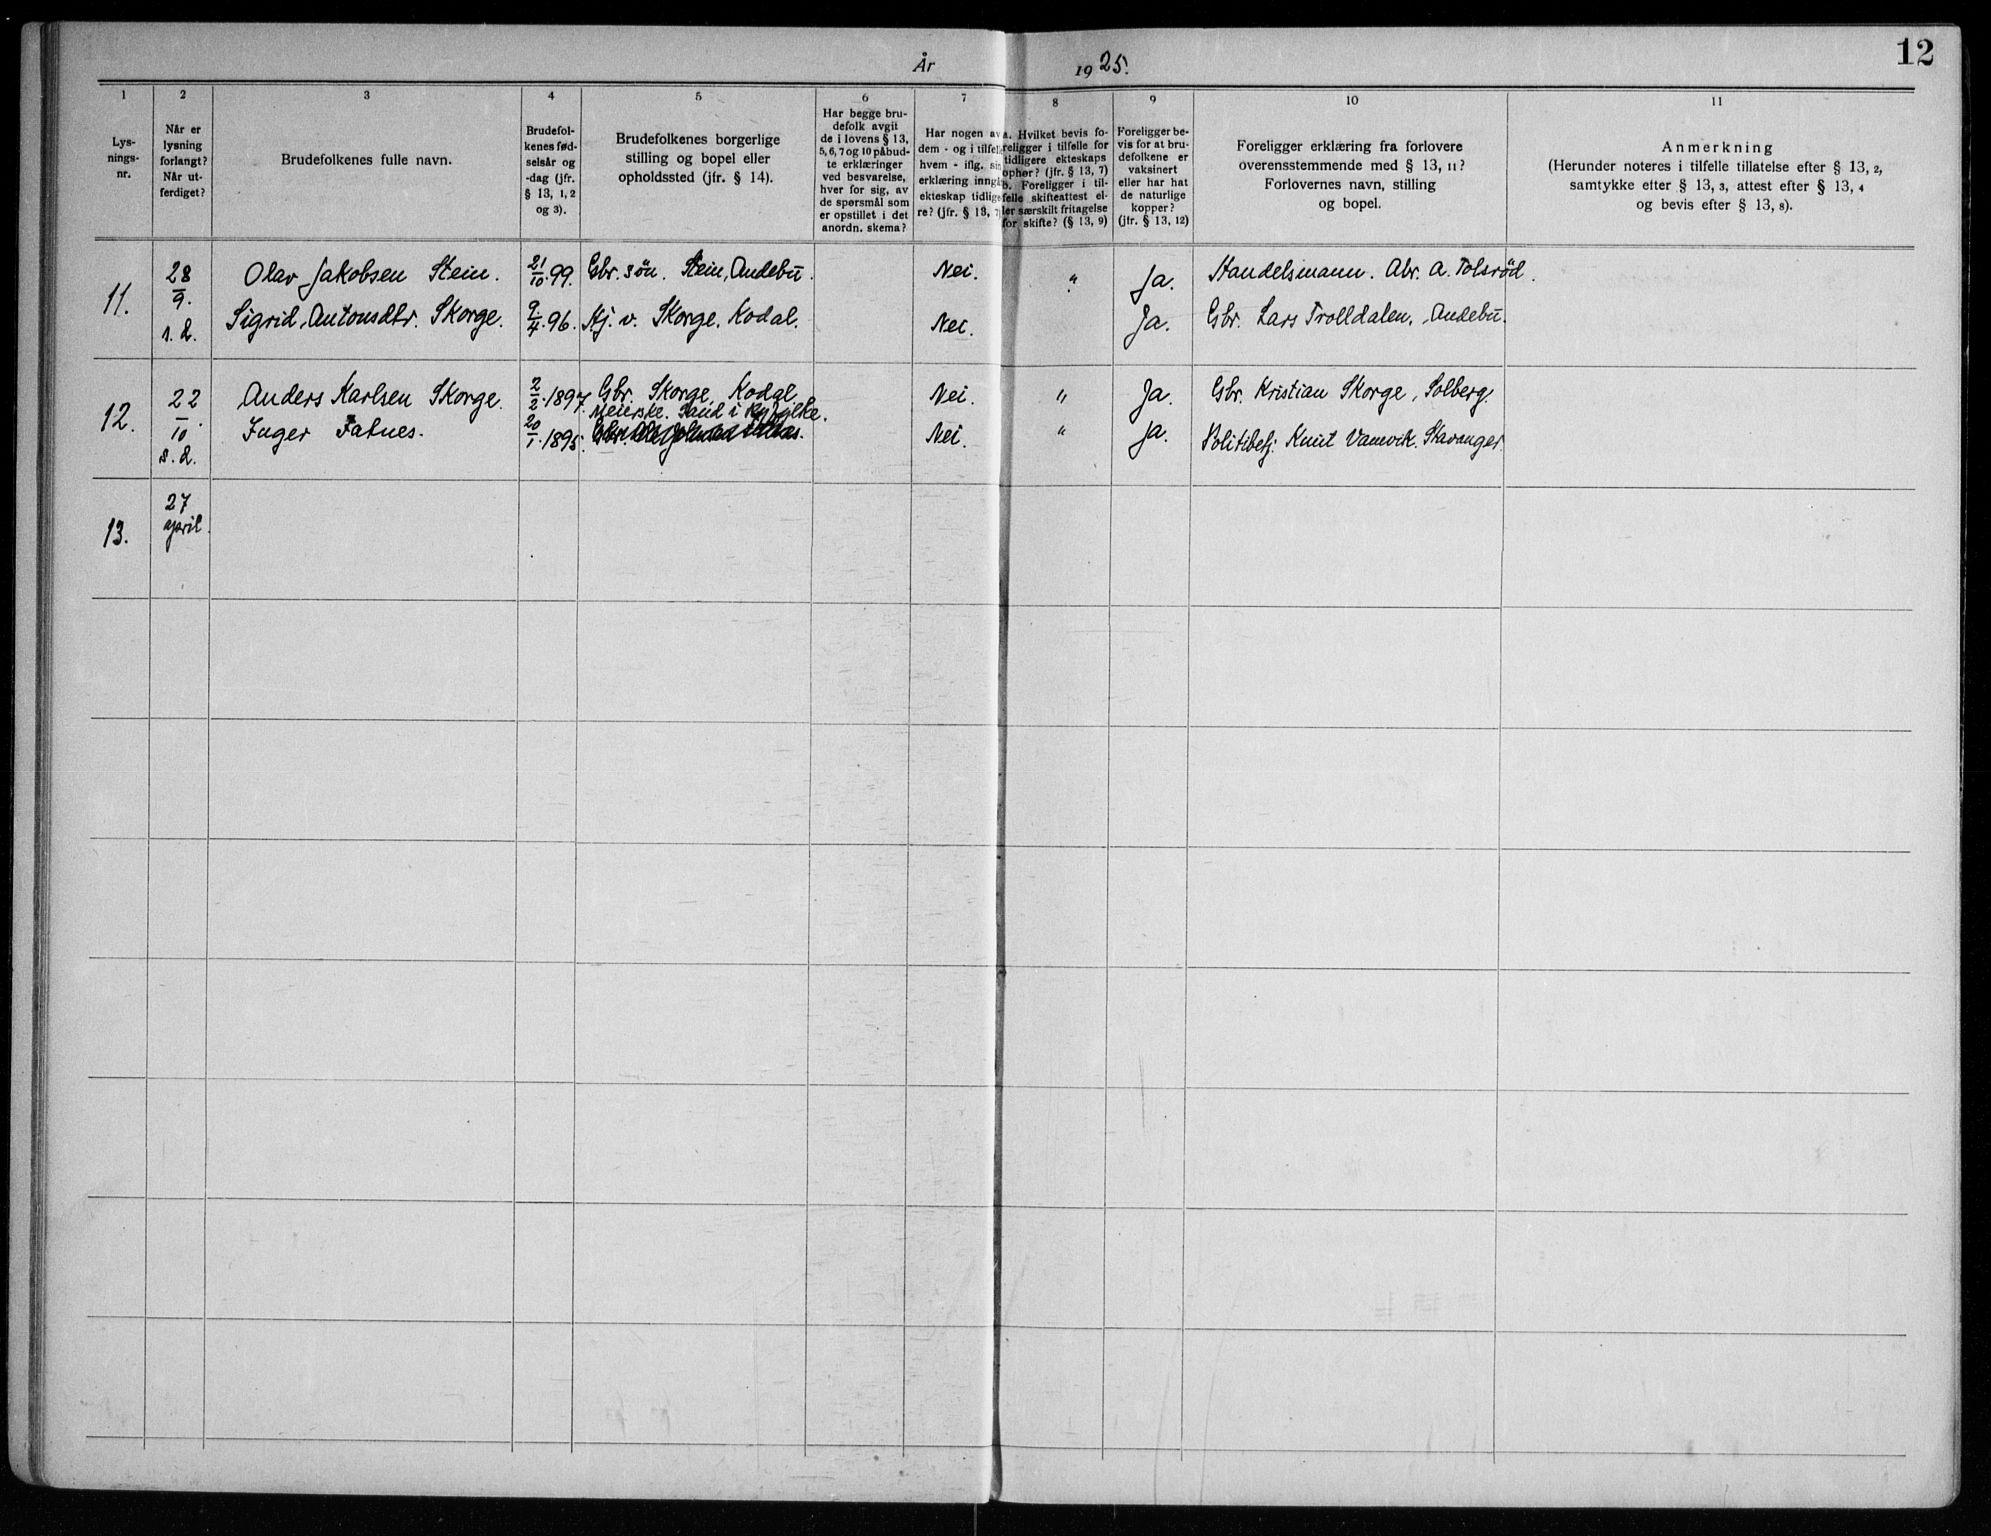 År 1925.
12
1
Lys-
nings-
nr.
2
Når er
lysning
forlangt?
Når ut-
ferdiget?
3
Brudefolkenes fulle navn.
4
Brudefol-
kenes fød-
selsår og
-dag (jfr.
§ 13, 1, 2
og 3).
5
Brudefolkenes borgerlige
stilling og bopel eller
opholdssted (jfr. § 14).
6
Har begge bru-
defolk avgit
de i lovens § 13,
5, 6, 7 og 10 påbud-
te erklæringer
ved besvarelse,
hver for sig, av
de spørsmål som
er opstillet i det
anordn. skema?
7
Har nogen av
dem - og i tilfel
hvem - iflg. sin
erklæring inngå
ekteskap tidlige
re? (jfr. § 13, 7
8
a. Hvilket bevis fo-
religger i tilfelle for
tidligere ekteskaps
ophør? (jfr. § 13, 7)
b. Foreligger i til-
felle skifteattest el-
ler særskilt fritagelse
for skifte? (§ 13, 9)
9
Foreligger be-
vis for at bru-
defolkene er
vaksinert
eller har hat
de naturlige
kopper?
(jfr. § 13, 12)
10
Foreligger erklæring fra forlovere
overensstemmende med § 13, 11?
Forlovernes navn, stilling
og bopel.
11
Anmerkning
(Herunder noteres i tilfelle tillatelse efter § 13, 2,
samtykke efter § 13, 3, attest efter § 13, 4
og bevis efter § 13, 8).
11.
28/9.
s. d.
Olav Jakobsen Stein. 21/10. 99. Gbr. søn. Stein, Andebu. Nei. " Ja. Handelsmann. Abr. A. Tolsrød.
Sigrid Antonsdtr. Skorge. 9/4. 96. Hj. v. Skorge. Kodal. Nei. Ja. Gbr. Lars Trolldalen, Andebu.
12.
22/10.
s. d.
Anders Karlsen Skorge. 2/2. 1897. Gbr. Skorge, Kodal. Nei. " Ja. Gbr. Kristian Skorge, Solberg.
Meierske. Sand i Ryfylke.
Inger Fatnes. 20/1. 1895. Nei. " Ja. Politibetj. Knut Vamvik. Stavanger.
13.
27
april.